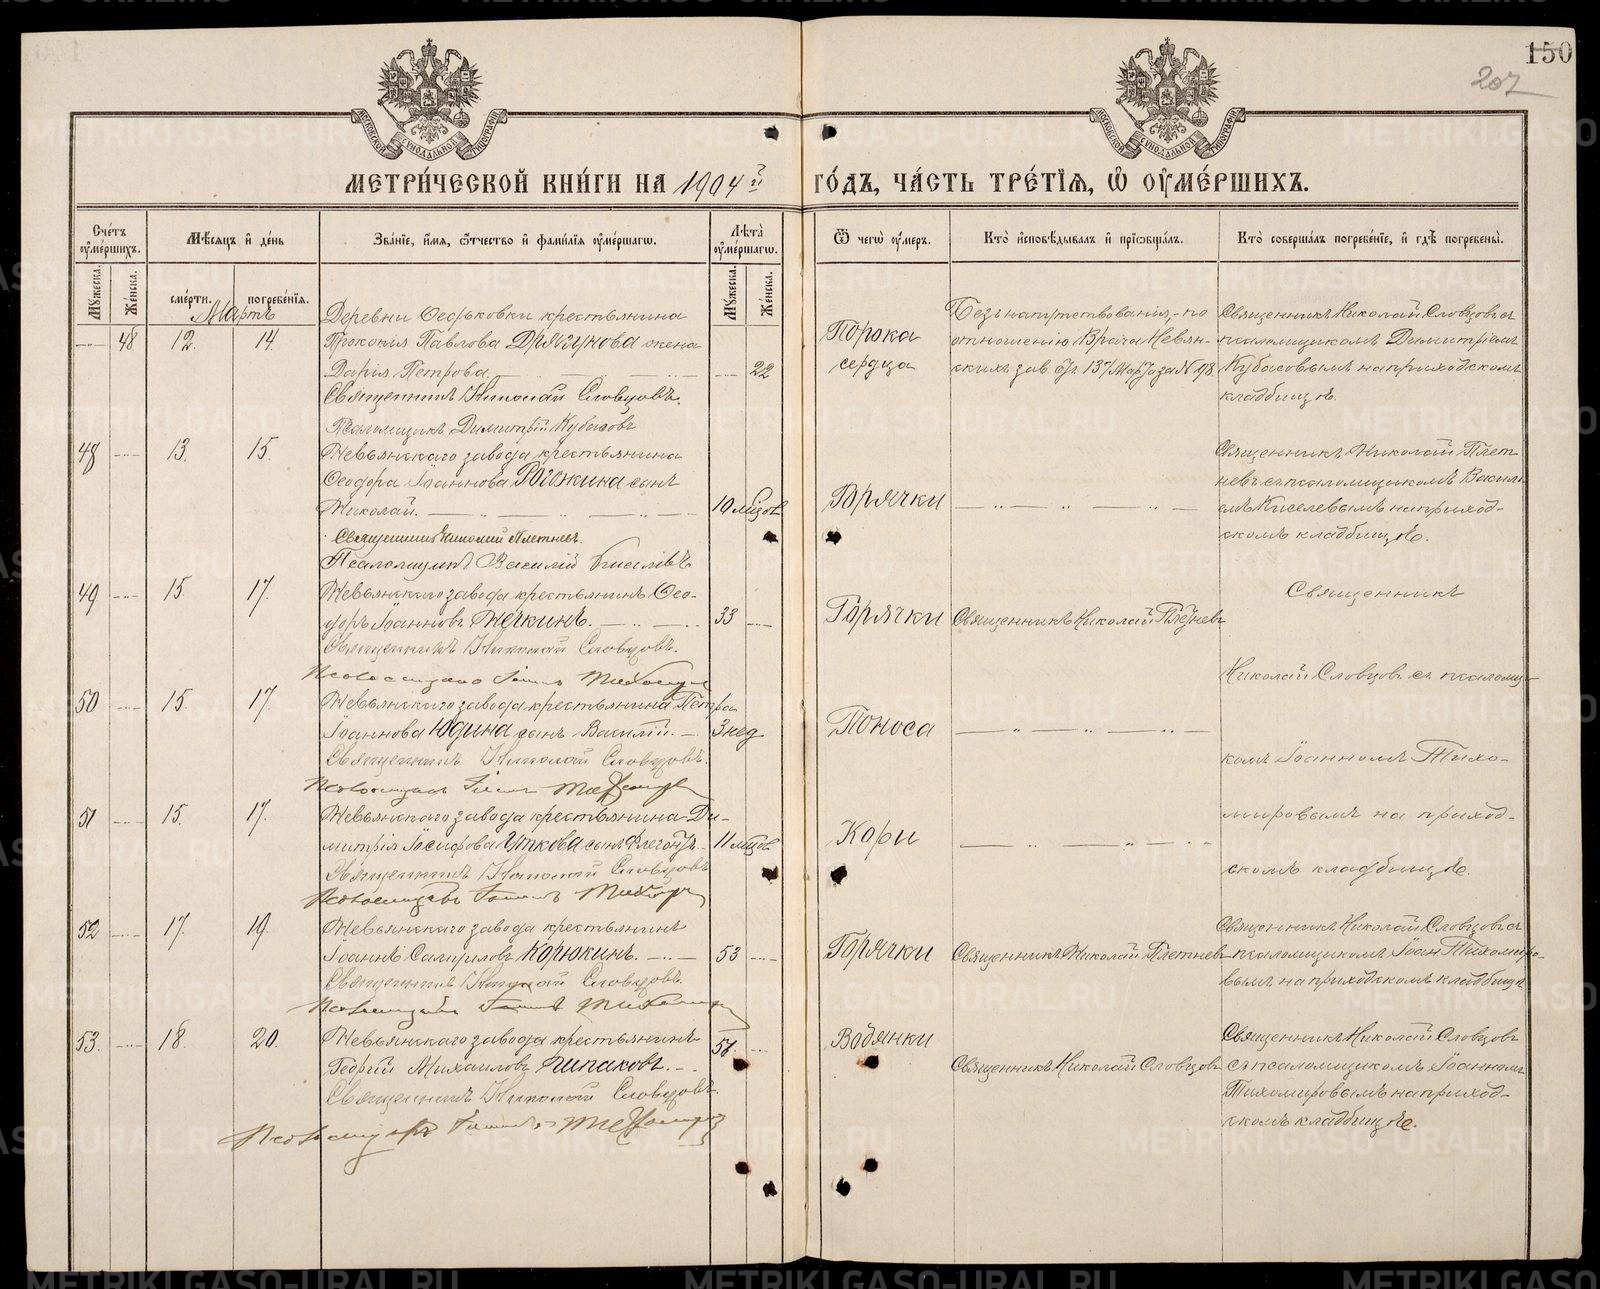 150
207
МОСКОВСКОЙ СѴНОДАЛЬНОЙ ТИПОГРАФІИ
МОСКОВСКОЙ СѴНОДАЛЬНОЙ ТИПОГРАФІИ
МЕТРИ́ЧЕСКОЙ КНИ́ГИ НА 1904й ГО́ДЪ, ЧА́СТЬ ТРЕ́ТІѦ, Ѡ҆ ОУ҆МЕ́РШИХЪ.
Сче́тъ оу҆ме́ршихъ.
Мꙋ́жеска.
Же́нска.
Мѣ́сѧцъ и҆ де́нь
сме́рти.
погребе́нїѧ.
Зва́нїе, и҆́мѧ, ѻ҆́тчество и҆ фами́лїѧ оу҆ме́ршагѡ.
Лѣ́та оу҆ме́ршагѡ.
Мꙋ́жеска.
Же́нска.
Ѿ чегѡ̀ оу҆́меръ.
Кто̀ и҆сповѣ́дывалъ и҆ прїѡбща́лъ.
Кто̀ соверша́лъ погребе́нїе, и҆ гдѣ̀ погребены̀.
Мартъ
48 12. 14.
Деревни Ѳедьковки крестьянина
Прокопія Павлова Дрягунова жена
Дарья Петрова. 22
Священникъ Николай Словцовъ.
Псаломщикъ Димитрій Кубасовъ
Порока
сердца
Безъ напутствованія, по
отношенію Врача Невьян-
скихъ зав. отъ 13 Марта за № 98.
Священникъ Николай Словцовъ съ
псаломщикомъ Димитріемъ
Кубасовымъ на приходскомъ
кладбищѣ.
48 13. 15.
Невьянскаго завода крестьянина
Ѳеодора Іоаннова Рогожина сынъ
Николай. 10 мѣсов
Священникъ Николай Плетневъ.
Псаломщикъ Василій Киселевъ
Горячки
Священникъ Николай Плет-
невъ съ псаломщикомъ Василі-
емъ Киселевымъ на приход-
скомъ кладбищѣ.
49 15. 17.
Невьянскаго завода крестьянинъ Ѳео-
доръ Іоанновъ 33
Священникъ Николай Словцовъ.
Псаломщикъ Іоаннъ Тихомировъ
Горячки
Священникъ Николай Плетневъ
Священникъ
Николай Словцовъ съ псаломщи-
комъ Іоанномъ Тихо-
мировымъ на приход-
скомъ кладбищѣ.
50 15. 17.
Невьянскаго завода крестьянина Петра
Іоаннова Юдина сынъ Василій. 3 нед
Священникъ Николай Словцовъ.
Псаломщикъ Іоаннъ Тихомировъ
Поноса
51 15. 17.
Невьянскаго завода крестьянина Ди-
митрія Іосифова Уткова сынъ Флегонтъ. 11 мѣсов
Священникъ Николай Словцовъ
Псаломщикъ Іоаннъ Тихомировъ
Кори
52 17. 19.
Невьянскаго завода крестьянинъ
Іоаннъ Самуиловъ Корюкинъ. 53
Священникъ Николай Словцовъ.
Псаломщикъ Іоаннъ Тихомировъ
Горячки
Священникъ Николай Плетневъ
Священникъ Николай Словцовъ съ
псаломщикомъ Іоан. Тихомиро-
вымъ на приходскомъ кладбищѣ
53. 18. 20.
Невьянскаго завода крестьянинъ
Георгій Михаиловъ
Священникъ Николай Словцовъ.
Псаломщикъ Іоаннъ Тихомировъ
Водянки
Священникъ Николай Словцовъ
Священникъ Николай Словцовъ
съ псаломщикомъ Іоанномъ
Тихомировымъ на приход-
скомъ кладбищѣ.
METRIKI.GASO-URAL.RU